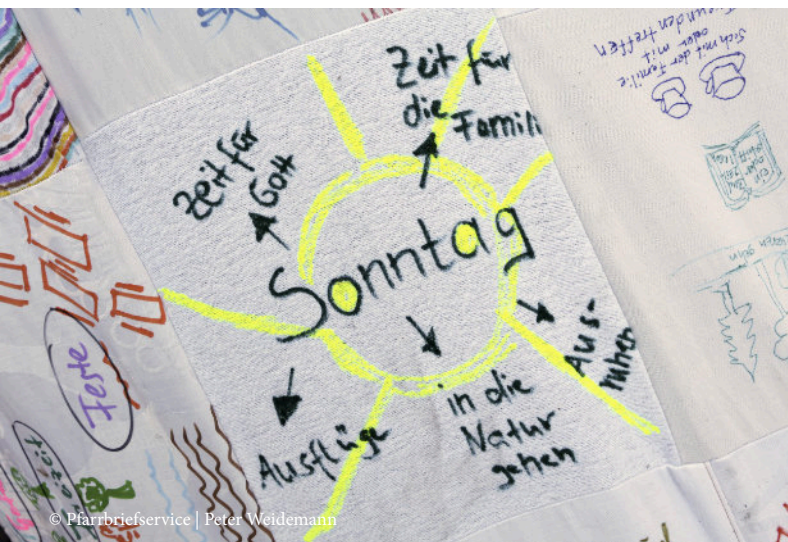 Zeit für
die
Famili
Zeit für
Gott
Sonntag
Aus-
ruhen
in die
Natur
gehen
Ausflüge
Feste
Sich mit der Familie
oder mit
Freunden treffen
© Pfarrbriefservice | Peter Weidemann